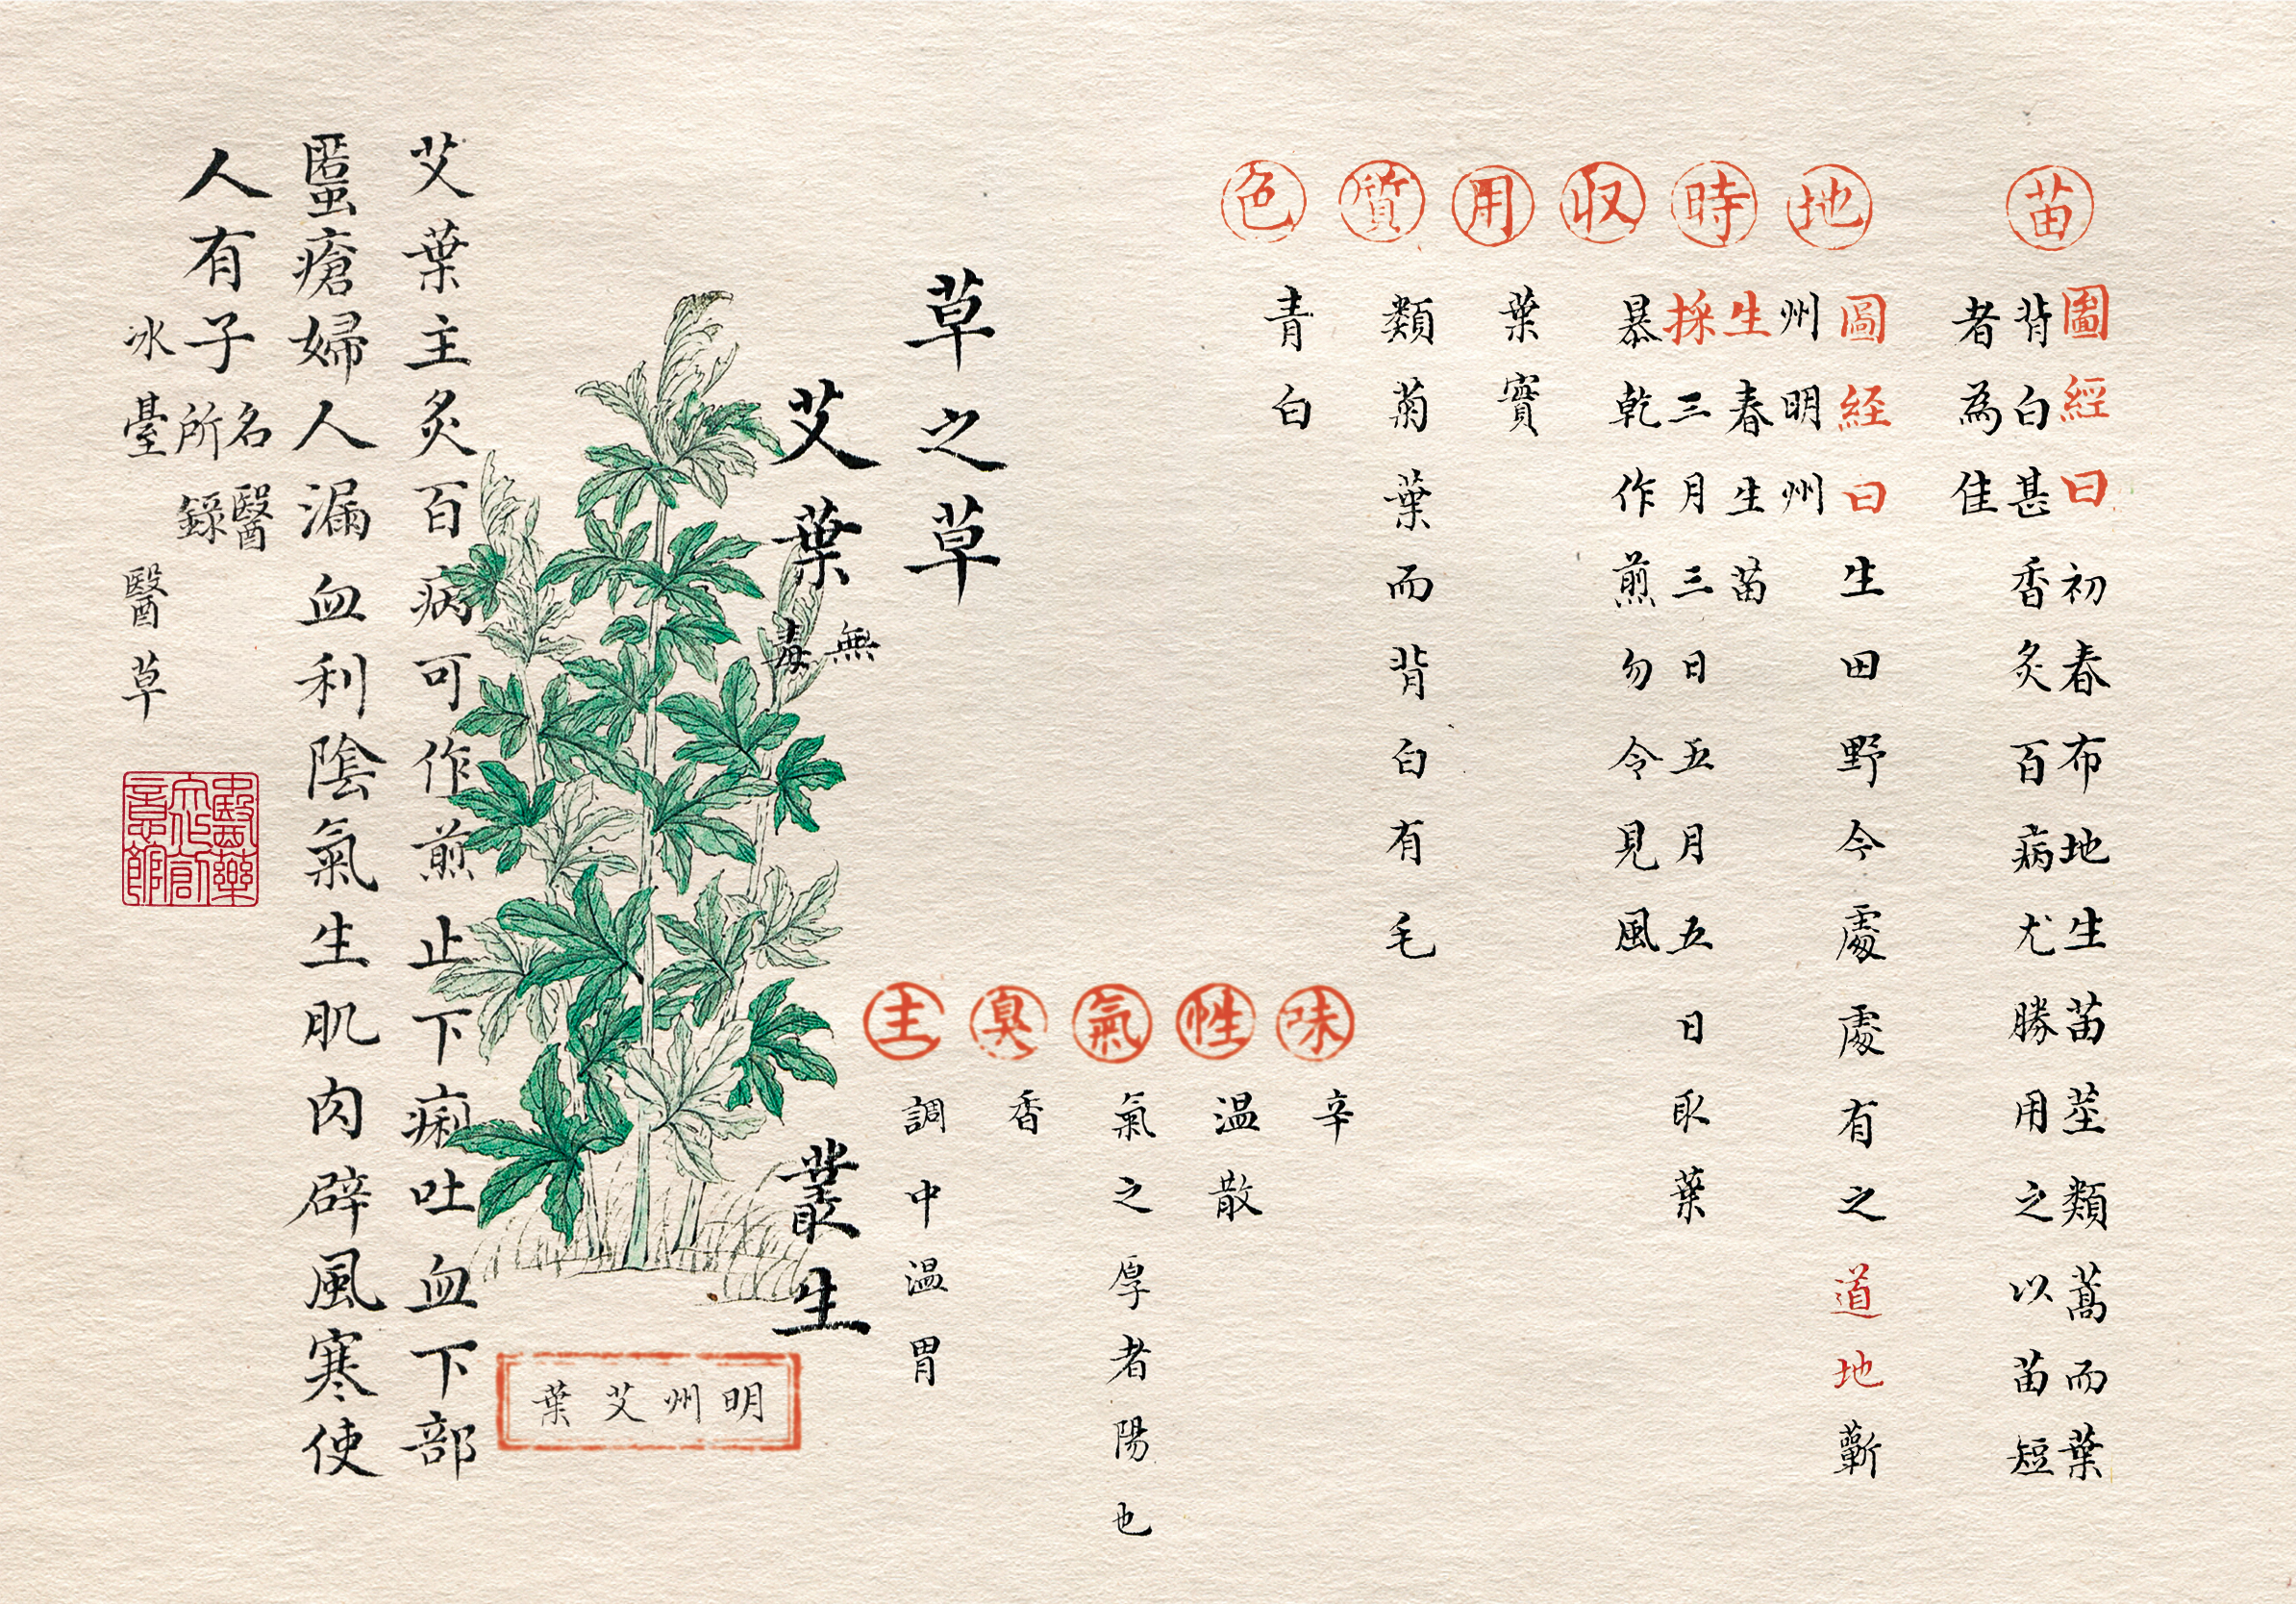 苗
圖經曰初春布地生苗莖類蒿而葉
背白甚香灸百病尤勝用之以苗短
者為佳
地
圖経曰生田野今處處有之道地蘄
州明州
時
生春生苗
採三月三日五月五日取葉
収
暴乾作煎勿令見風
用
葉實
質
類菊葉而背白有毛
色
青白
味
辛
性
温散
氣
氣之厚者陽也
臭
香
主
調中温胃
草之草
艾葉
無毒
叢生
明州艾葉
艾葉主灸百病可作煎止下痢吐血下部
䘌瘡婦人漏血利陰氣生肌肉辟風寒使
人有子
名醫
所錄
冰臺 醫草